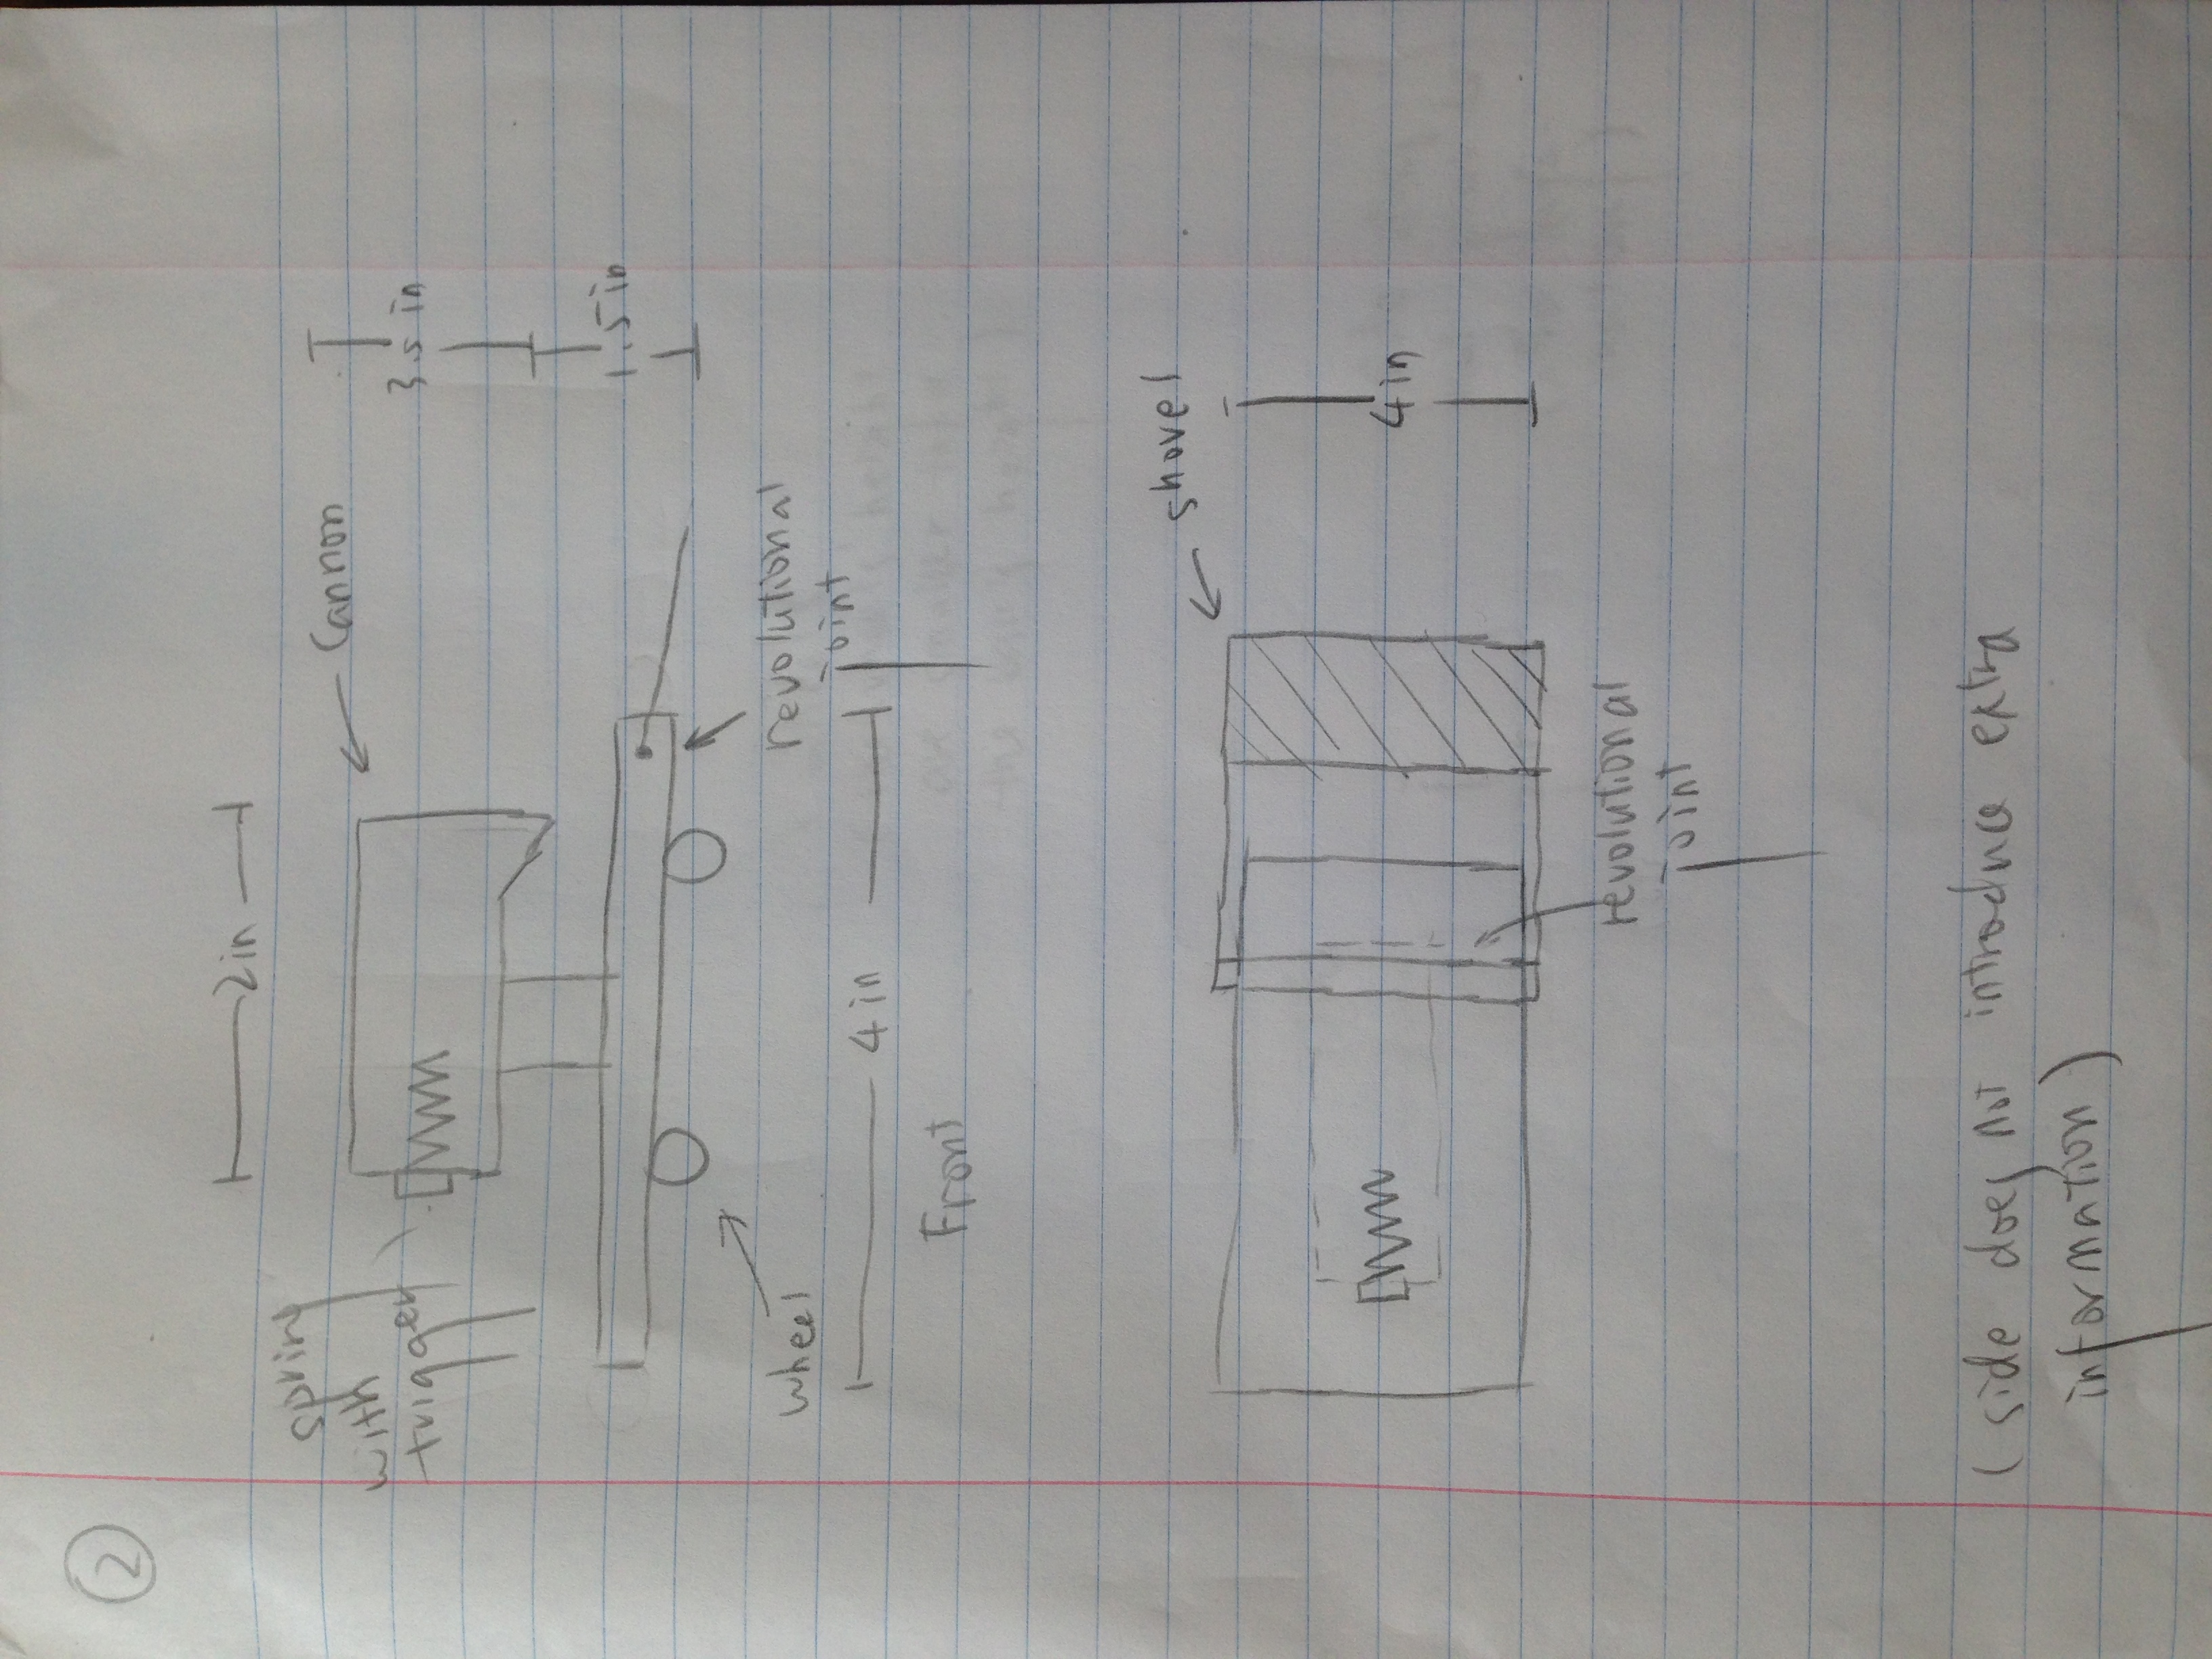 2
2 in
spring
with
trigger
Cannon
3.5 in
1.5 in
wheel
revolutional
joint
4 in
Front
shovel
4 in
revolutional
joint
(side does not introduce extra
information)